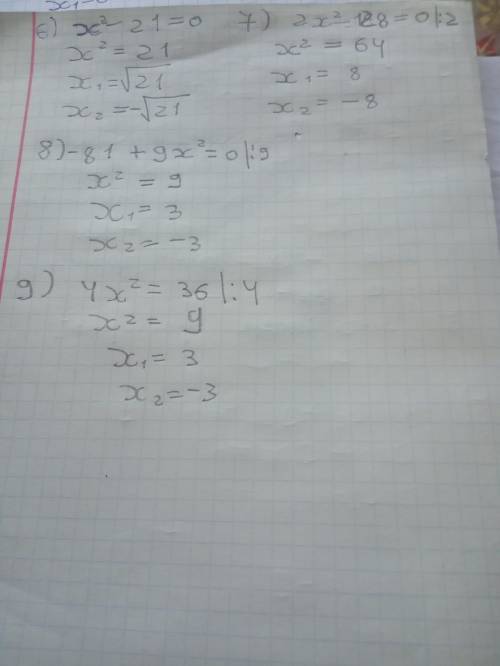 x₁=0
6) x² - 21 = 0
x² = 21
x₁ = √21
x₂ = -√21
7) 2x² - 128 = 0 |:2
x² = 64
x₁ = 8
x₂ = -8
8) -81 + 9x² = 0 |:9
x² = 9
x₁ = 3
x₂ = -3
9) 4x² = 36 |:4
x² = 9
x₁ = 3
x₂ = -3